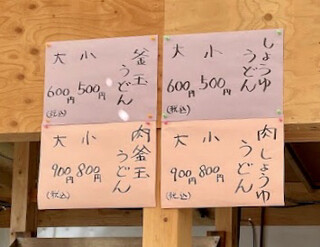 しょうゆ
うどん
小
500円
大
600円
(税込)
釜玉
うどん
小
500円
大
600円
(税込)
肉しょうゆ
うどん
小
800円
大
900円
(税込)
肉釜玉
うどん
小
800円
大
900円
(税込)